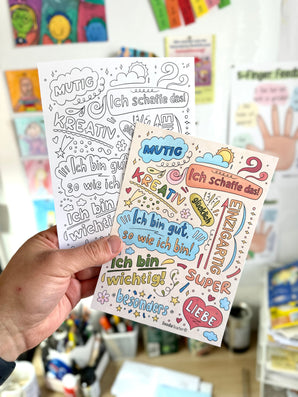 MUTIG
Ich schaffe das!
KREATIV
Ich bin gut,
so wie ich bin!
Ich bin
wichtig!
besonders
5-Finger-Feedb
MUTIG
Ich schaffe das!
KREATIV
glücklich
EINZIGARTIG
Ich bin gut,
so wie ich bin!
Ich bin
wichtig!
SUPER
besonders
LIEBE